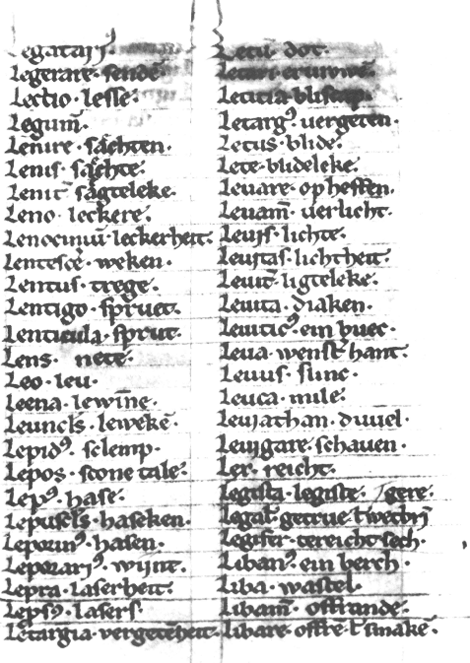 Legatarꝭ
Legerare · sendē.
Lectio · lesse.
Legum̄.
Lenire · sachten.
Lenis · sachte.
Lenit̄ · sagteleke.
Leno · leckere.
Lenociniū · leckerheit.
Lentescē · weken.
Lentus · trege.
Lentigo · spruet.
Lenticula · sprut.
Lens · nete.
Leo · leu.
Leena · lewine.
Leuncls · lewekē.
Lepidꝰ · sclemp.
Lepos · scone tale.
Lepꝰ · hase.
Lepuscls · haseken.
Leporinꝰ · hasen.
Leporarꝭ · wijnt.
Lepra · laserheit.
Lepsꝰ · lasers.
Letargia · vergetēheit.
Letū · dot.
Leticia · bliscap.
Letargꝰ · uergeten.
Letus · blide.
Lete · blideleke.
Leuare · opheffen.
Leuam̄ · uerlicht.
Leuis · lichte.
Leuitas · lichtheit.
Leuit̄ · ligteleke.
Leuita · diaken.
Leuiticꝰ · ein buec.
Leua · wenst̄ hant.
Leuus · slinc.
Leuca · mile.
Leuiathan · duuel.
Leuigare · schauen.
Lex · reicht.
Legista · legiste. / gere.
Legal̄ · getrue ł wech
Legifer · tereicht sech.
Libanꝰ · ein berch.
Liba · wastel.
Libam̄ · offrande.
Libare · offre ł smakē.